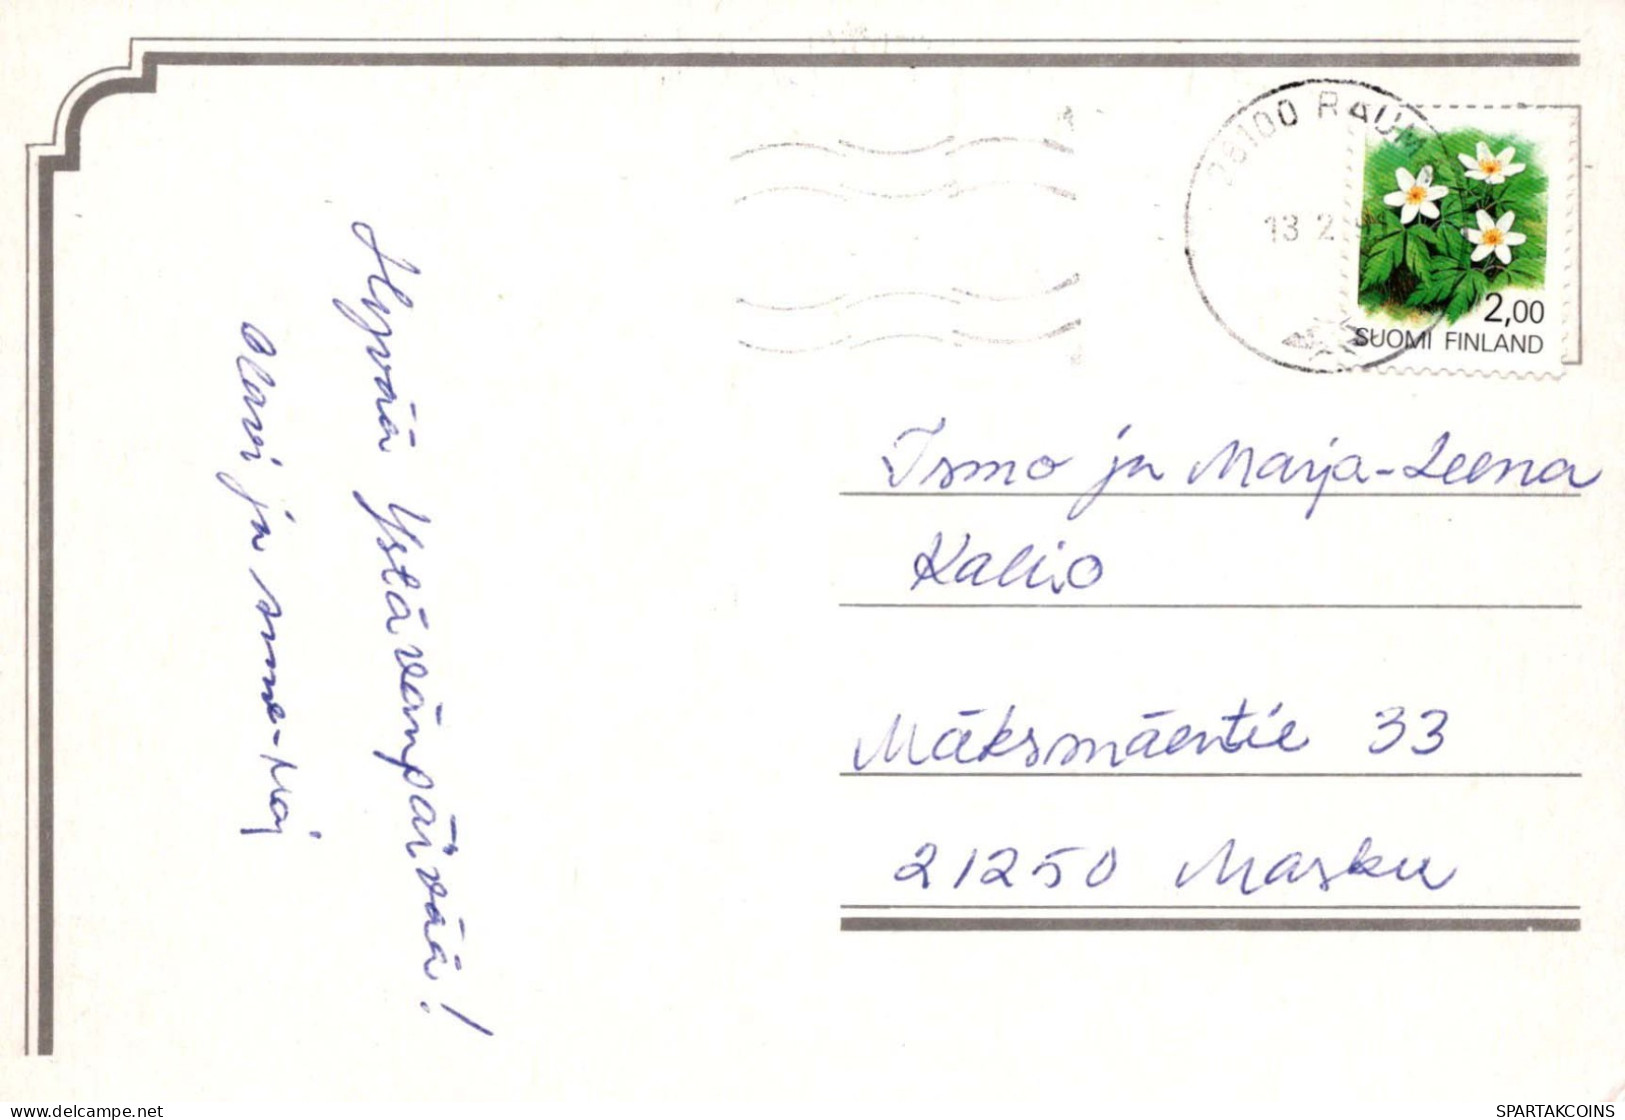 Hyvää Ystävänpäivää!
Olavi ja
26100 RAUMA
13 2
2,00
SUOMI FINLAND
Ismo ja Marja-Leena
Kallio
Mäksmäentie 33
21250 Masku
www.delcampe.net
SPARTAKCOINS